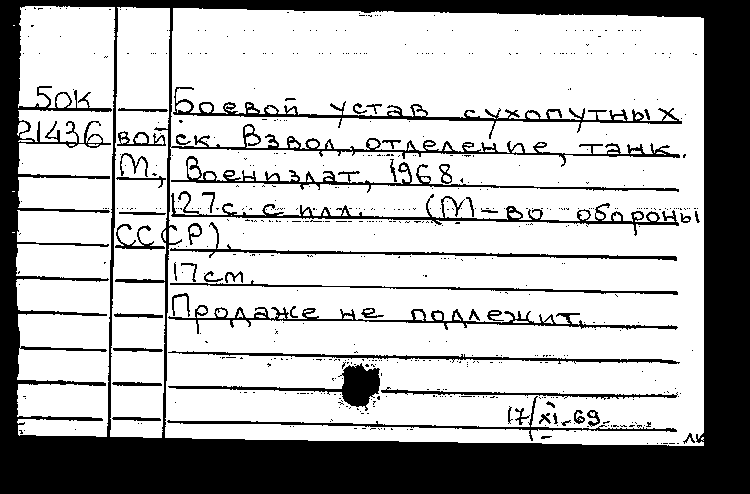 50К Боевой устав сухопутных
21436 войск. Взвод, отделение, танк.
М., Воениздат, 1968.
127с. с илл. (М-во обороны
СССР).
17см.
Продаже не подлежит.
17/XI-69
ЛК